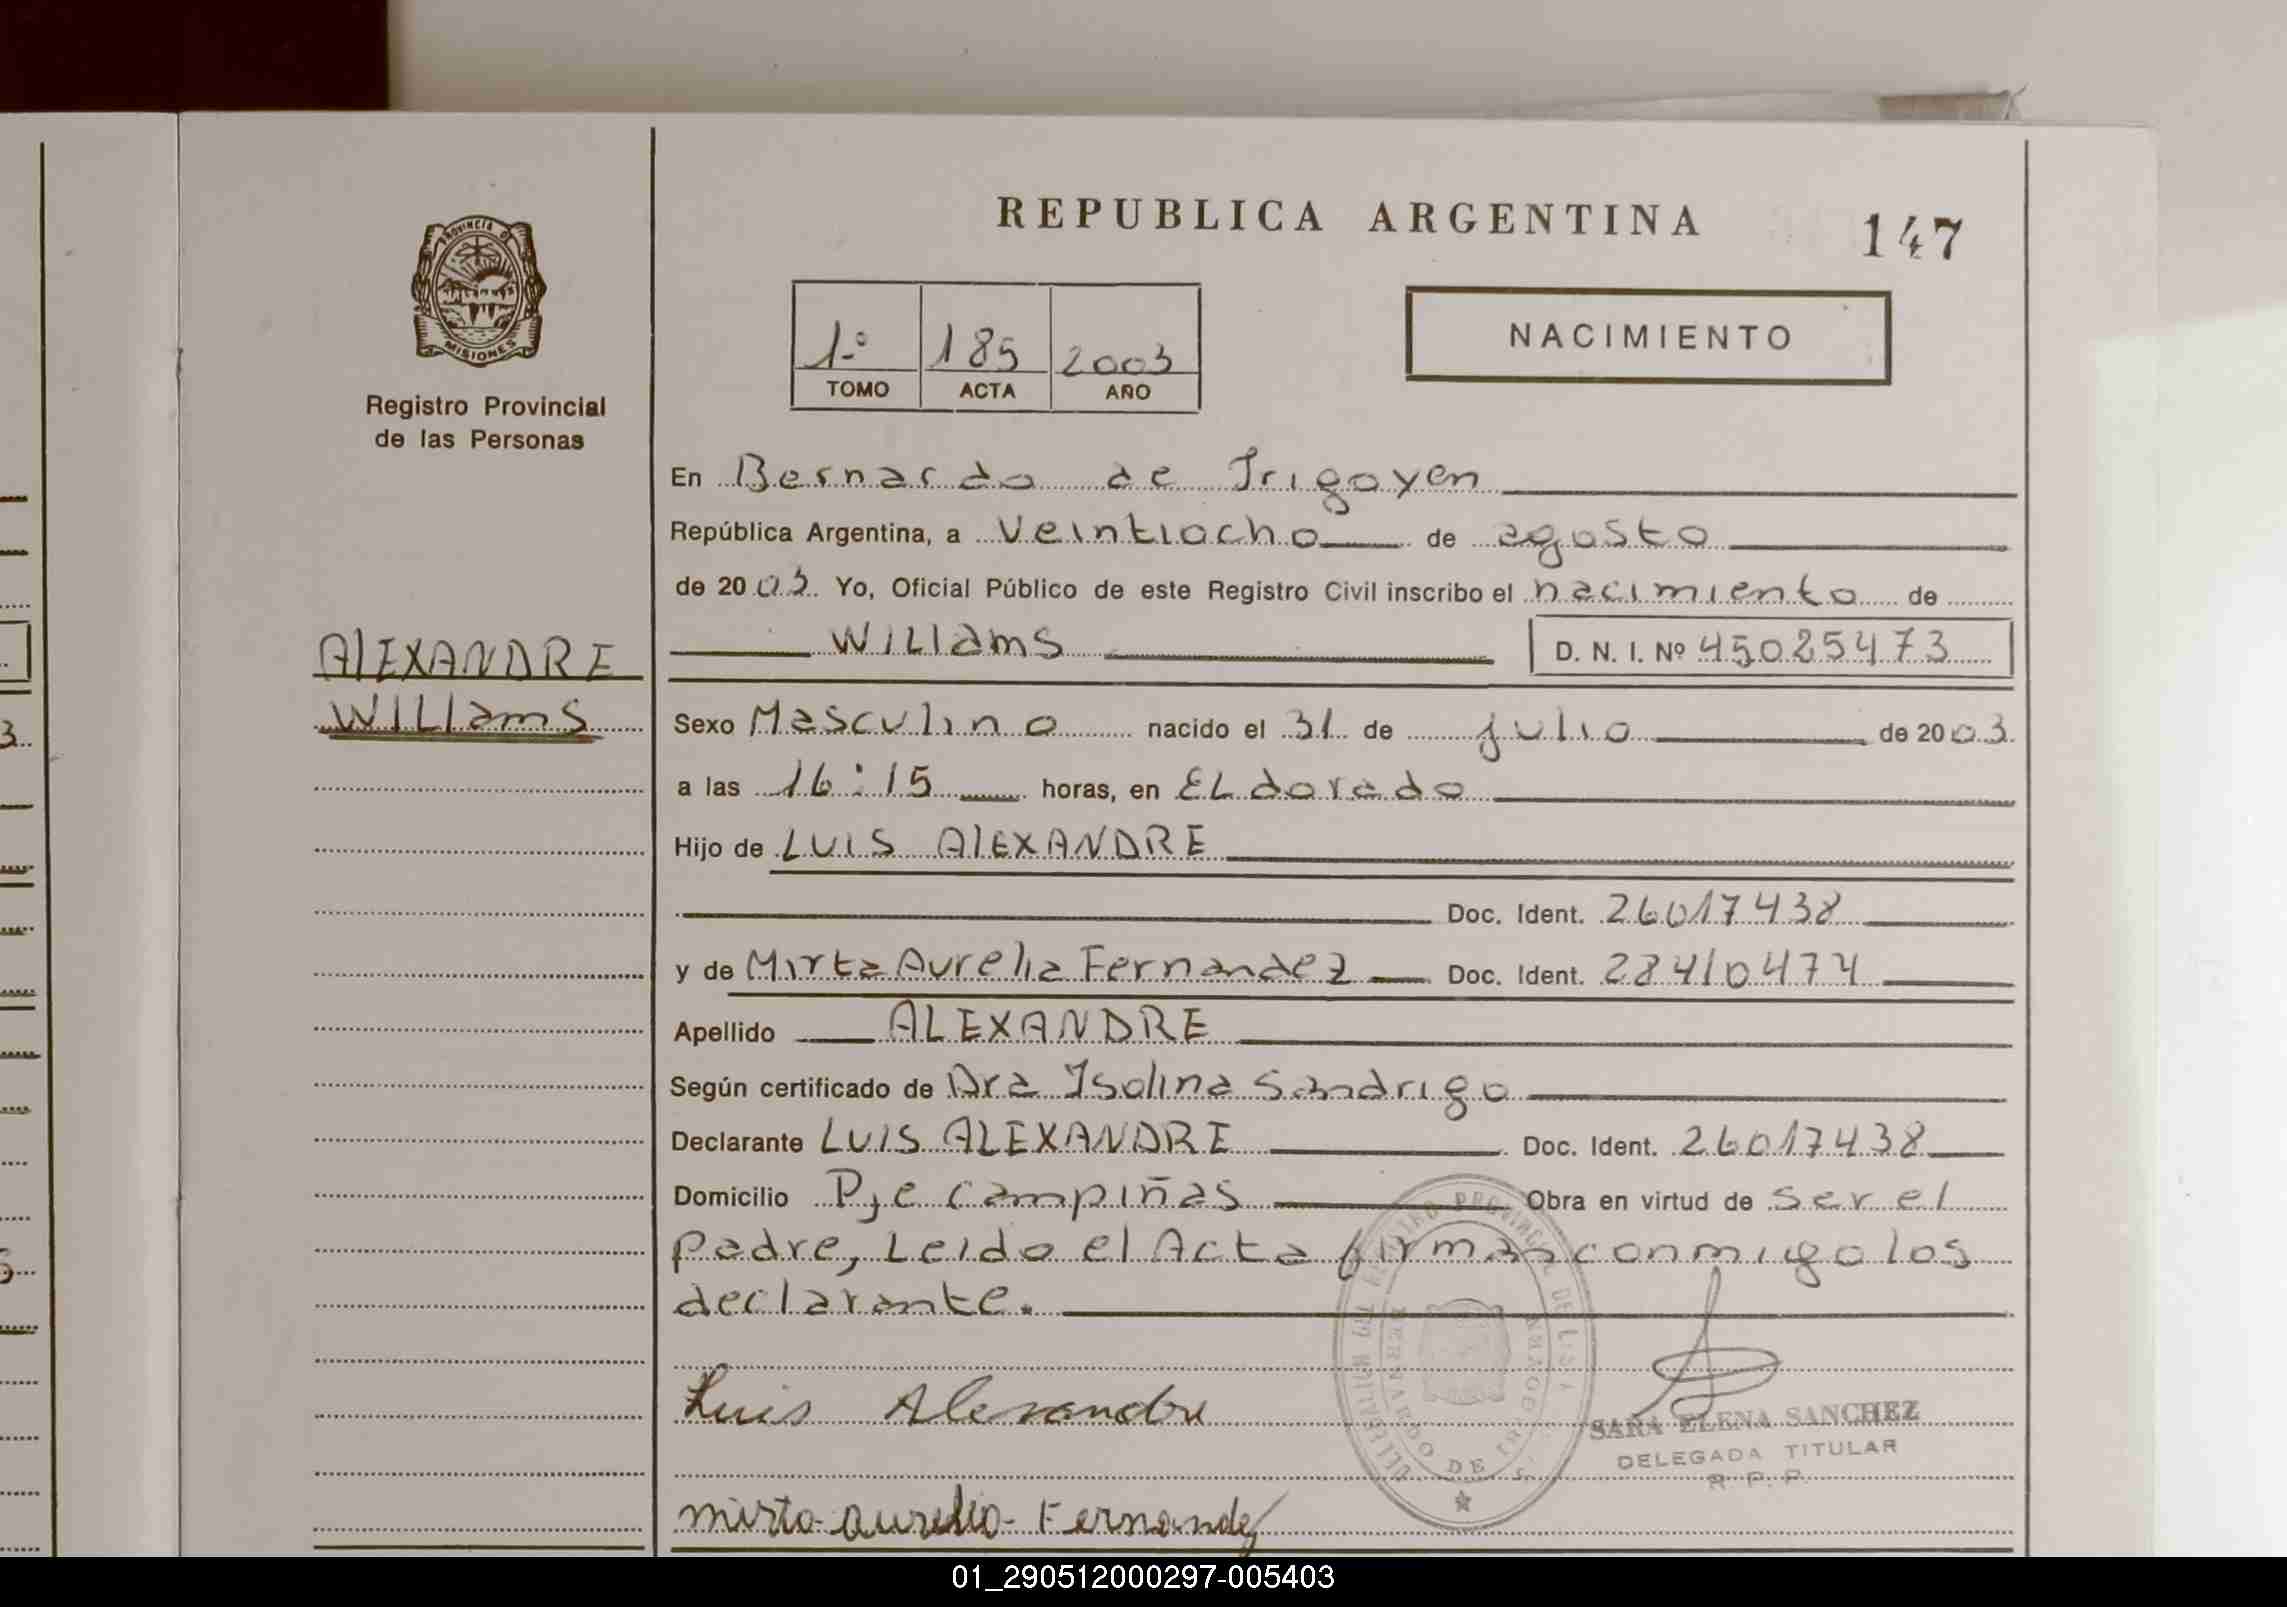 REPUBLICA ARGENTINA
147
PROVINCIA DE
MISIONES
Registro Provincial
de las Personas
1º 185 2003
TOMO ACTA AÑO
NACIMIENTO
En Bernardo de Irigoyen
República Argentina, a Veintiocho de agosto
de 2003. Yo, Oficial Público de este Registro Civil inscribo el nacimiento de
ALEXANDRE
Willams
Willams D. N. I. Nº 45025473
Sexo Masculino nacido el 31 de julio de 2003
a las 16:15 horas, en ELdorado
Hijo de LUIS ALEXANDRE
Doc. Ident. 26017438
y de Mirta Aurelia Fernandez Doc. Ident. 28410474
Apellido ALEXANDRE
Según certificado de Dra Isolina Sandrigo
Declarante LUIS ALEXANDRE Doc. Ident. 26017438
Domicilio Pje campiñas Obra en virtud de ser el
padre, Leido el Acta firman conmigo los
declarante.
Luis Alexandre
SARA ELENA SANCHEZ
DELEGADA TITULAR
R. P. P.
mirta aurelia Fernandez
BERNARDO DE
01_290512000297-005403